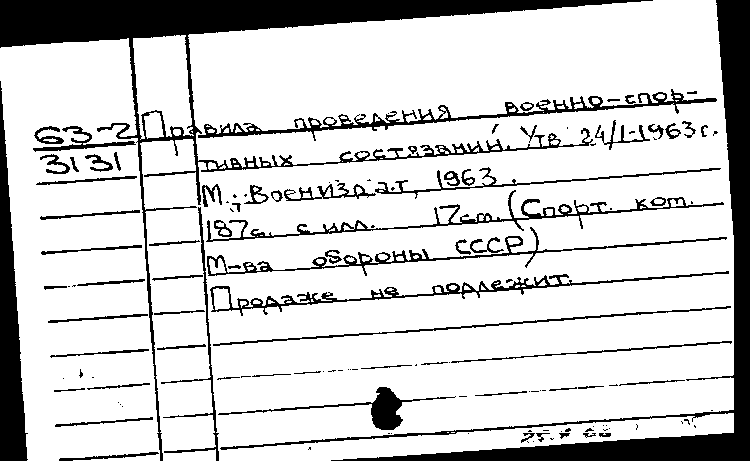 63-2 Правила проведения военно-спор-
3131 тивных состязаний. Утв. 24/I-1963г.
М., Воениздат, 1963.
187с. с илл. 17см. (Спорт. ком.
М-ва обороны СССР)
Продаже не подлежит.